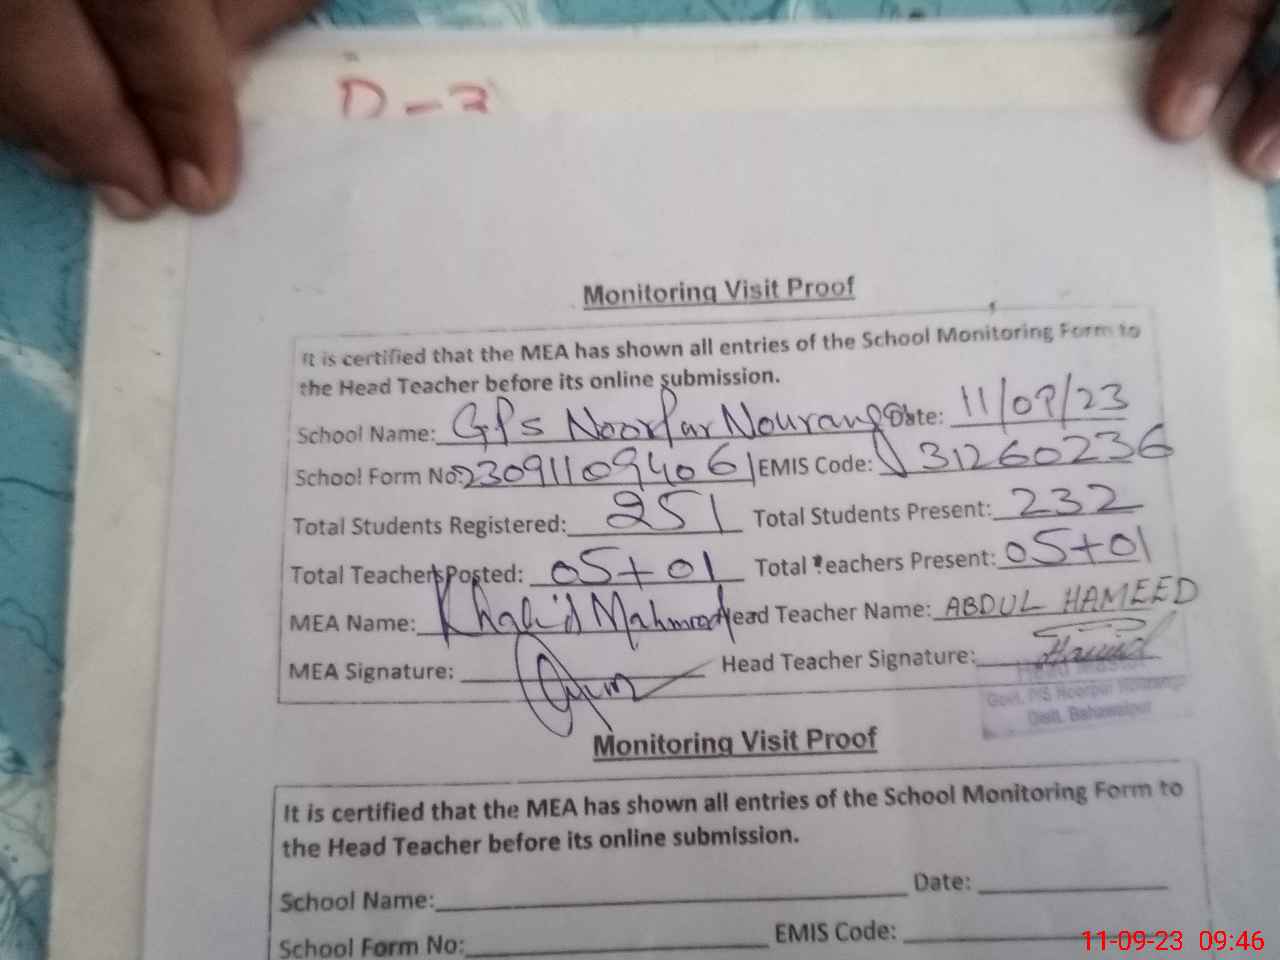 D-3
Monitoring Visit Proof
It is certified that the MEA has shown all entries of the School Monitoring Form to
the Head Teacher before its online submission.
School Name: GPS Noorpur Nourang Date: 11/09/23
School Form No: 230911094061 EMIS Code: 31260236
Total Students Registered: 251 Total Students Present: 232
Total Teachers Posted: 05+01 Total Teachers Present: 05+01
MEA Name: Khalid Mahmood Head Teacher Name: ABDUL HAMEED
MEA Signature: Head Teacher Signature: Hameed
Head Master
Govt. P/S Noorpur Nourang
Distt. Bahawalpur
Monitoring Visit Proof
It is certified that the MEA has shown all entries of the School Monitoring Form to
the Head Teacher before its online submission.
School Name: Date:
School Form No: EMIS Code:
11-09-23 09:46